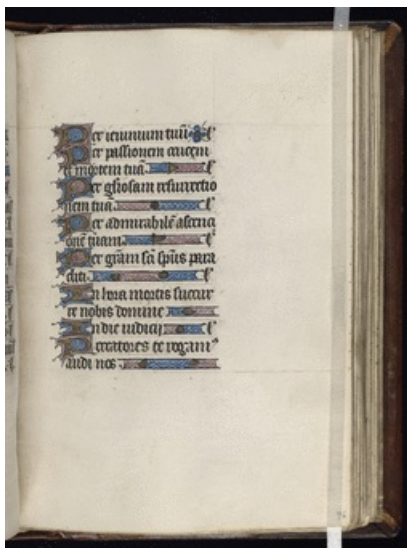 Per ieiunium tuū l'
Per passionem crucem
et mortem tuā.
Per gl'osam resurrectio
nem tuā. l'
Per admirabilē ascenci
onē tuam. l'
Per grām sc̄i sp̄us para
cliti. l'
In hora mortis succur
re nobis domine l'
In die iudicij l'
Peccatores te rogam'
audi nos.